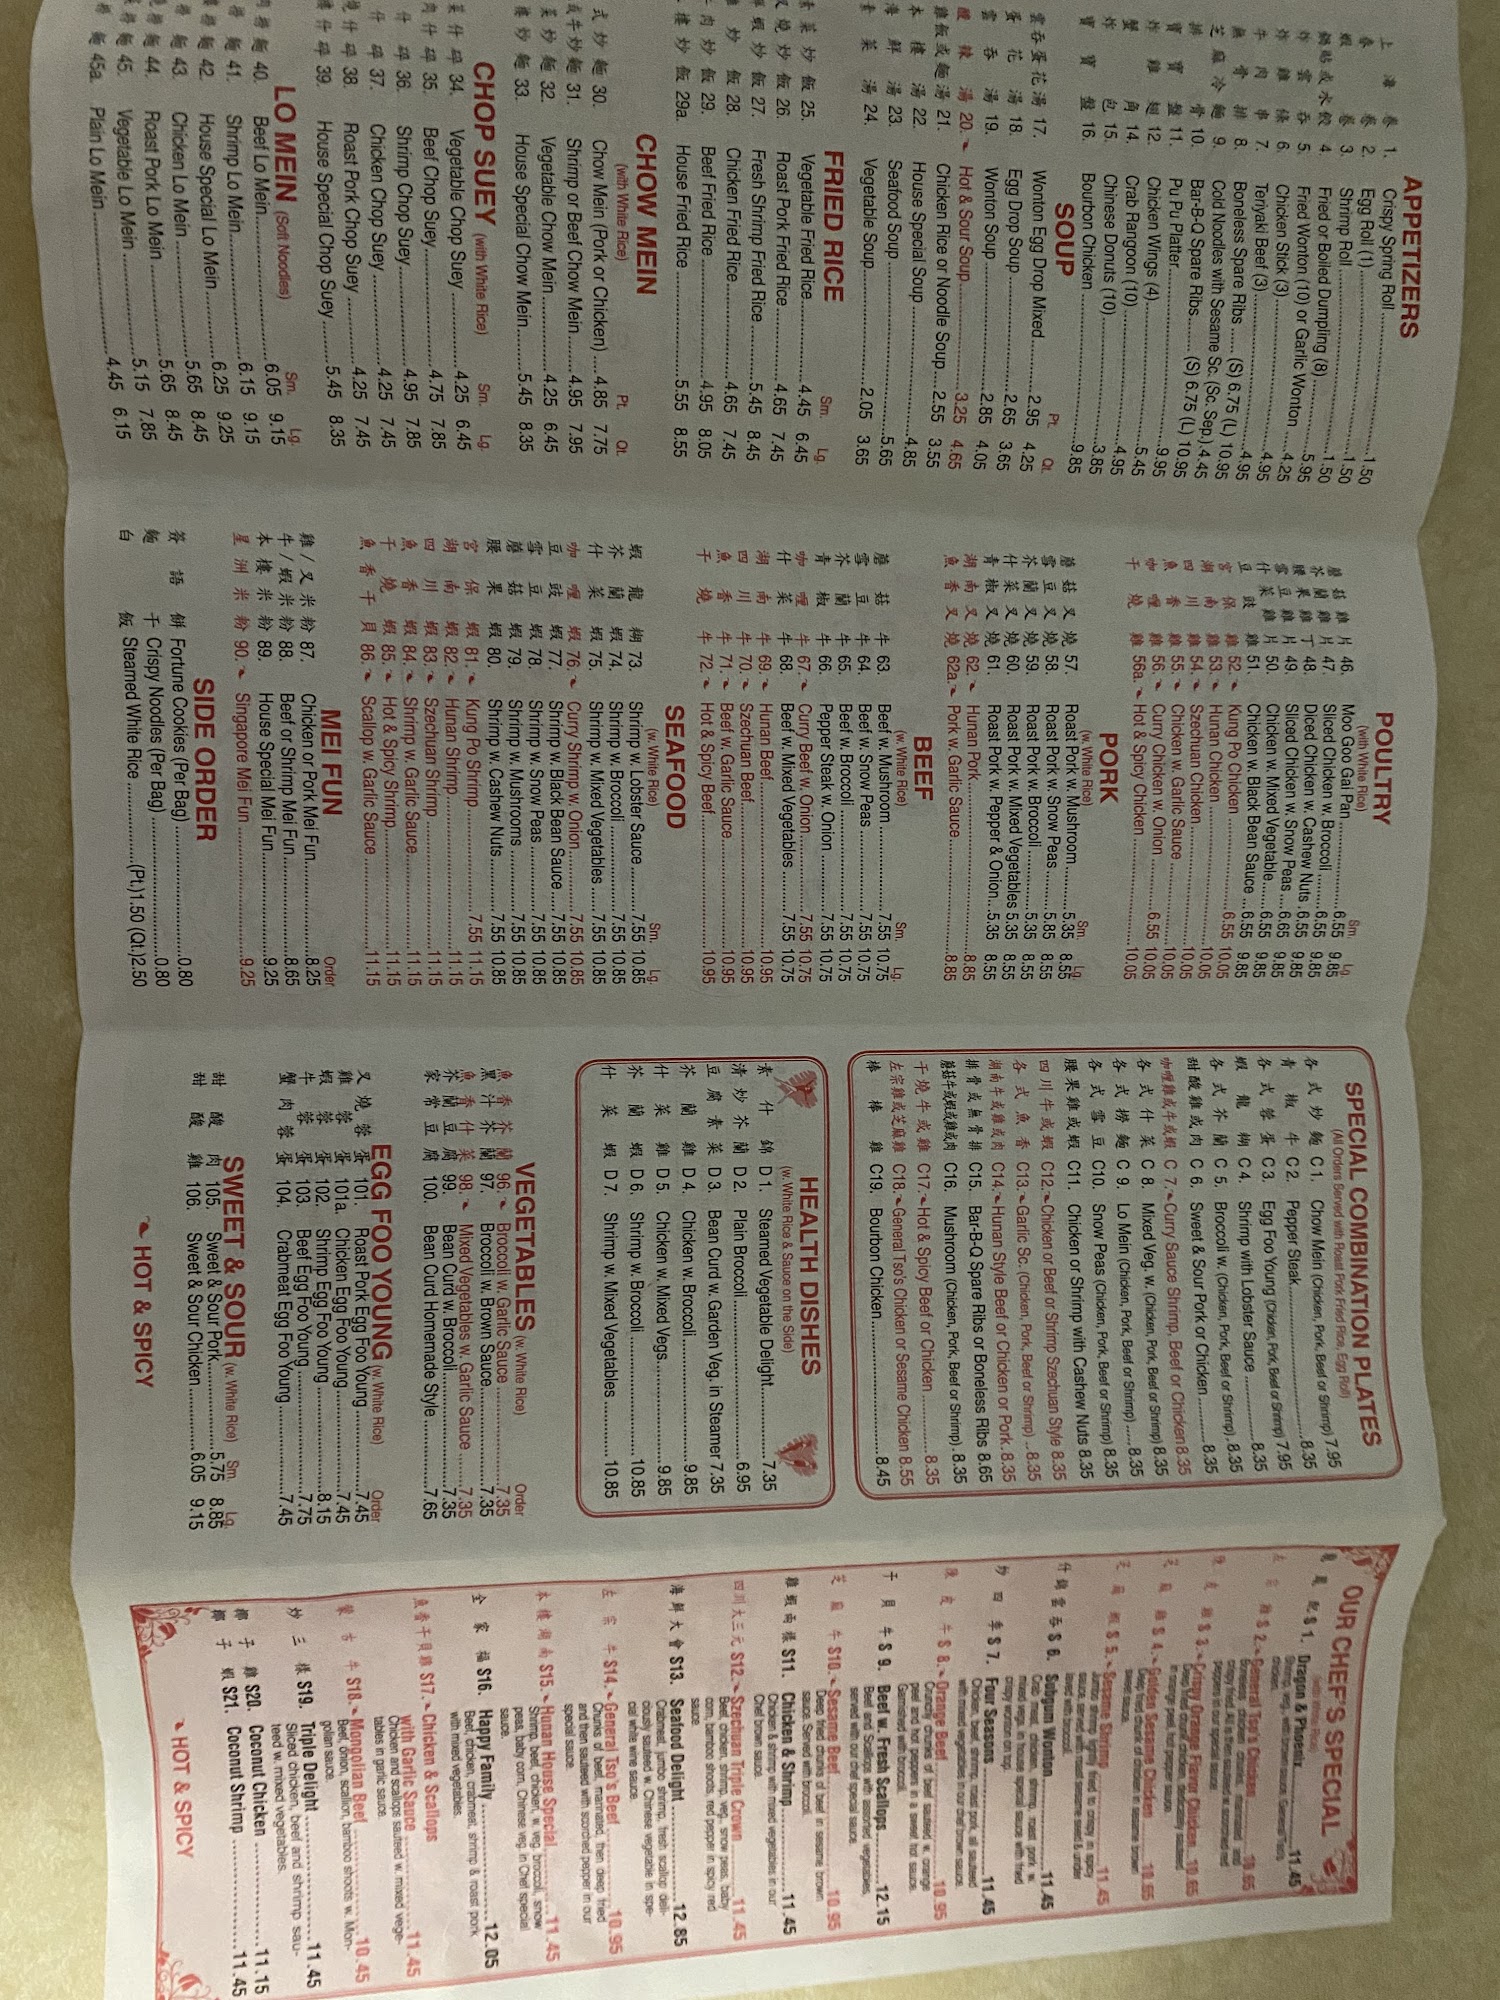 APPETIZERS
上海卷 1. Crispy Spring Roll 1.50
春卷 2. Egg Roll (1) 1.50
蝦卷 3. Shrimp Roll 1.50
鍋貼或水餃 4. Fried or Boiled Dumpling (8)
炸雲吞 5. Fried Wonton (10) or Garlic Wonton 5.95
炸雞條 6. Chicken Stick (3) 4.25
牛肉串 7. Teriyaki Beef (3) 4.95
無骨排 8. Boneless Spare Ribs (S) 6.75 (L) 10.95
芝麻冷麵 9. Cold Noodles with Sesame Sc. (Sc. Sep.) 4.45
排骨 10. Bar-B-Q Spare Ribs (S) 6.75 (L) 10.95
寶寶盤 11. Pu Pu Platter
炸雞翅 12. Chicken Wings (4)
蟹角 14. Crab Rangoon (10) 5.45
炸包 15. Chinese Donuts (10)
16. Bourbon Chicken 9.85
SOUP
Pt. Qt.
雲吞蛋花湯 17. Wonton Egg Drop Mixed 2.95 4.25
蛋花湯 18. Egg Drop Soup 2.65 3.65
雲吞湯 19. Wonton Soup 2.85 4.05
酸辣湯 20. Hot & Sour Soup 3.25 4.65
雞飯或麵湯 21. Chicken Rice or Noodle Soup 2.55 3.55
本樓湯 22. House Special Soup 4.85
海鮮湯 23. Seafood Soup 5.65
素菜湯 24. Vegetable Soup 2.05 3.65
FRIED RICE
Sm. Lg.
素菜炒飯 25. Vegetable Fried Rice 4.45 6.45
叉燒炒飯 26. Roast Pork Fried Rice 4.65 7.45
蝦炒飯 27. Fresh Shrimp Fried Rice 5.45 8.45
炒飯 28. Chicken Fried Rice 4.65 7.45
牛肉炒飯 29. Beef Fried Rice 4.95 8.05
樓炒飯 29a. House Fried Rice 5.55 8.55
CHOW MEIN
(with White Rice) Pt. Qt.
式炒麵 30. Chow Mein (Pork or Chicken) 4.85 7.75
或牛炒麵 31. Shrimp or Beef Chow Mein 4.95 7.95
菜炒麵 32. Vegetable Chow Mein 4.25 6.45
樓炒麵 33. House Special Chow Mein 5.45 8.35
CHOP SUEY (with White Rice) Sm. Lg.
菜什碎 34. Vegetable Chop Suey 4.25 6.45
肉什碎 35. Beef Chop Suey 4.75 7.85
什碎 36. Shrimp Chop Suey 4.95 7.85
什碎 37. Chicken Chop Suey 4.25 7.45
燒什碎 38. Roast Pork Chop Suey 4.25 7.45
樓什碎 39. House Special Chop Suey 5.45 8.35
LO MEIN (Soft Noodles) Sm. Lg.
肉撈麵 40. Beef Lo Mein 6.05 9.15
撈麵 41. Shrimp Lo Mein 6.15 9.15
樓撈麵 42. House Special Lo Mein 6.25 9.25
撈麵 43. Chicken Lo Mein 5.65 8.45
撈麵 44. Roast Pork Lo Mein 5.65 8.45
撈麵 45. Vegetable Lo Mein 5.15 7.85
撈麵 45a. Plain Lo Mein 4.45 6.15
POULTRY
(with White Rice) Sm. Lg.
蘑菇雞片 46. Moo Goo Gai Pan 6.55 9.85
芥蘭雞片 47. Sliced Chicken w. Broccoli 6.55 9.85
腰果雞丁 48. Diced Chicken w. Cashew Nuts 6.55 9.85
雪豆雞片 49. Sliced Chicken w. Snow Peas 6.65 9.85
什菜雞片 50. Chicken w. Mixed Vegetable 6.55 9.85
豆豉雞 51. Chicken w. Black Bean Sauce 6.55 9.85
宮保雞 52. Kung Po Chicken 6.55 10.05
湖南雞 53. Hunan Chicken 10.05
四川雞 54. Szechuan Chicken 10.05
魚香雞 55. Chicken w. Garlic Sauce 10.05
咖喱雞 56. Curry Chicken w. Onion 6.55 10.05
干燒雞 56a. Hot & Spicy Chicken 10.05
PORK
(w. White Rice) Sm. Lg.
蘑菇叉燒 57. Roast Pork w. Mushroom 5.35 8.55
雪豆叉燒 58. Roast Pork w. Snow Peas 5.85 8.55
芥蘭叉燒 59. Roast Pork w. Broccoli 5.35 8.55
什菜叉燒 60. Roast Pork w. Mixed Vegetables 5.35 8.55
青椒叉燒 61. Roast Pork w. Pepper & Onion 5.35 8.55
湖南叉燒 62. Hunan Pork 8.85
魚香叉燒 62a. Pork w. Garlic Sauce 8.85
BEEF
(w. White Rice) Sm. Lg.
蘑菇牛 63. Beef w. Mushroom 7.55 10.75
雪豆牛 64. Beef w. Snow Peas 7.55 10.75
芥蘭牛 65. Beef w. Broccoli 7.55 10.75
青椒牛 66. Pepper Steak w. Onion 7.55 10.75
咖喱牛 67. Curry Beef w. Onion 7.55 10.75
什菜牛 68. Beef w. Mixed Vegetables 7.55 10.75
湖南牛 69. Hunan Beef 10.95
四川牛 70. Szechuan Beef 10.95
魚香牛 71. Beef w. Garlic Sauce 10.95
干燒牛 72. Hot & Spicy Beef 10.95
SEAFOOD
(w. White Rice) Sm. Lg.
蝦龍糊 73. Shrimp w. Lobster Sauce 7.55 10.85
芥蘭蝦 74. Shrimp w. Broccoli 7.55 10.85
什菜蝦 75. Shrimp w. Mixed Vegetables 7.55 10.85
咖喱蝦 76. Curry Shrimp w. Onion 7.55 10.85
豆豉蝦 77. Shrimp w. Black Bean Sauce 7.55 10.85
雪豆蝦 78. Shrimp w. Snow Peas 7.55 10.85
蘑菇蝦 79. Shrimp w. Mushrooms 7.55 10.85
腰果蝦 80. Shrimp w. Cashew Nuts 7.55 10.85
宮保蝦 81. Kung Po Shrimp 7.55 11.15
湖南蝦 82. Hunan Shrimp 11.15
四川蝦 83. Szechuan Shrimp 11.15
魚香蝦 84. Shrimp w. Garlic Sauce 11.15
干燒蝦 85. Hot & Spicy Shrimp 11.15
魚香干貝 86. Scallop w. Garlic Sauce 11.15
MEI FUN
Order
雞/叉米粉 87. Chicken or Pork Mei Fun 8.25
牛/蝦米粉 88. Beef or Shrimp Mei Fun 8.65
本樓米粉 89. House Special Mei Fun 9.25
星洲米粉 90. Singapore Mei Fun 9.25
SIDE ORDER
簽語餅 Fortune Cookies (Per Bag) 0.80
麵干 Crispy Noodles (Per Bag) 0.80
白飯 Steamed White Rice (Pt.)1.50 (Qt.)2.50
SPECIAL COMBINATION PLATES
(All Orders Served with Roast Pork Fried Rice, Egg Roll)
各式炒麵 C 1. Chow Mein (Chicken, Pork, Beef or Shrimp) 7.95
青椒牛 C 2. Pepper Steak 8.35
各式蓉蛋 C 3. Egg Foo Young (Chicken, Pork, Beef or Shrimp) 7.95
蝦龍糊 C 4. Shrimp with Lobster Sauce 8.35
各式芥蘭 C 5. Broccoli w. (Chicken, Pork, Beef or Shrimp) 8.35
甜酸雞或肉 C 6. Sweet & Sour Pork or Chicken 8.35
咖喱雞或牛或蝦 C 7. Curry Sauce Shrimp, Beef or Chicken 8.35
各式什菜 C 8. Mixed Veg. w. (Chicken, Pork, Beef or Shrimp) 8.35
各式撈麵 C 9. Lo Mein (Chicken, Pork, Beef or Shrimp) 8.35
各式雪豆 C10. Snow Peas (Chicken, Pork, Beef or Shrimp) 8.35
腰果雞或蝦 C11. Chicken or Shrimp with Cashew Nuts 8.35
四川牛或蝦 C12. Chicken or Beef or Shrimp Szechuan Style 8.35
各式魚香 C13. Garlic Sc. (Chicken, Pork, Beef or Shrimp) 8.35
湖南牛或雞或肉 C14. Hunan Style Beef or Chicken or Pork 8.35
排骨或無骨排 C15. Bar-B-Q Spare Ribs or Boneless Ribs 8.65
蘑菇牛或蝦或雞或肉 C16. Mushroom (Chicken, Pork, Beef or Shrimp) 8.35
干燒牛或雞 C17. Hot & Spicy Beef or Chicken 8.35
左宗雞或芝麻雞 C18. General Tso's Chicken or Sesame Chicken 8.55
棒棒雞 C19. Bourbon Chicken 8.45
HEALTH DISHES
(w. White Rice & Sauce on the Side)
素什錦 D 1. Steamed Vegetable Delight 7.35
清炒芥蘭 D 2. Plain Broccoli 6.95
豆腐素菜 D 3. Bean Curd w. Garden Veg. in Steamer 7.35
芥蘭雞 D 4. Chicken w. Broccoli 9.85
什菜雞 D 5. Chicken w. Mixed Vegs. 9.85
芥蘭蝦 D 6. Shrimp w. Broccoli 10.85
什菜蝦 D 7. Shrimp w. Mixed Vegetables 10.85
VEGETABLES (w. White Rice)
Order
魚香芥蘭 96. Broccoli w. Garlic Sauce 7.35
黑汁芥蘭 97. Broccoli w. Brown Sauce 7.35
魚香什菜 98. Mixed Vegetables w. Garlic Sauce 7.35
芥蘭豆腐 99. Bean Curd w. Broccoli 7.35
家常豆腐 100. Bean Curd Homemade Style 7.65
EGG FOO YOUNG (w. White Rice)
Order
叉燒蓉蛋 101. Roast Pork Egg Foo Young 7.45
雞蓉蛋 101a. Chicken Egg Foo Young 7.45
蝦蓉蛋 102. Shrimp Egg Foo Young 8.15
牛蓉蛋 103. Beef Egg Foo Young 7.75
蟹肉蓉蛋 104. Crabmeat Egg Foo Young 7.45
SWEET & SOUR (w. White Rice) Sm. Lg.
甜酸肉 105. Sweet & Sour Pork 5.75 8.85
甜酸雞 106. Sweet & Sour Chicken 6.05 9.15
HOT & SPICY
OUR CHEF'S SPECIAL
(with White Rice)
S 1. Dragon & Phoenix 11.45
S 2. General Tso's Chicken 10.65
S 3. Crispy Orange Flavor Chicken 10.65
S 4. Golden Sesame Chicken 10.65
S 5. Sesame Shrimp 11.45
S 6. Subgum Wonton 11.45
Crab meat, chicken, shrimp, roast pork w.
mixed vegs. in house special sauce with fried
crispy wonton on top.
炒四季 S 7. Four Seasons 11.45
Chicken, beef, shrimp, roast pork, all sauteed
with mixed vegetables in our chef brown sauce.
陳皮牛 S 8. Orange Beef 10.95
Crunchy chunks of beef sauteed w. orange
peel and hot peppers in a sweet hot sauce.
Garnished with broccoli.
干貝牛 S 9. Beef w. Fresh Scallops 12.15
Beef and Scallops with assorted vegetables,
served with our chef special sauce.
芝麻牛 S10. Sesame Beef 10.95
Deep fried chunks of beef in sesame brown
sauce. Served with broccoli.
雞蝦兩樣 S11. Chicken & Shrimp 11.45
Chicken & shrimp with mixed vegetables in our
Chef brown sauce.
四川大三元 S12. Szechuan Triple Crown 11.45
Beef, chicken, shrimp, veg., snow peas, baby
corn, bamboo shoots, red pepper in spicy red
sauce.
海鮮大會 S13. Seafood Delight 12.85
Crabmeat, jumbo shrimp, fresh scallop deli-
ciously sauteed w. Chinese vegetable in spe-
cial white wine sauce.
左宗牛 S14. General Tso's Beef 10.95
Chunks of beef, marinated, then deep fried
and then sauteed with scorched pepper in our
special sauce.
本樓湖南 S15. Hunan House Special 11.45
Shrimp, beef, chicken, w. veg. broccoli, snow
peas, baby corn, Chinese veg. in Chef special
sauce.
全家福 S16. Happy Family 12.05
Beef, chicken, crabmeat, shrimp & roast pork
with mixed vegetables.
魚香干貝雞 S17. Chicken & Scallops
with Garlic Sauce 11.45
Chicken and scallops sauteed w. mixed vege-
tables in garlic sauce.
蒙古牛 S18. Mongolian Beef 10.45
Beef, onion, scallion, bamboo shoots w. Mon-
golian sauce.
炒三樣 S19. Triple Delight 11.45
Sliced chicken, beef and shrimp sau-
teed w. mixed vegetables.
椰子雞 S20. Coconut Chicken 11.15
椰子蝦 S21. Coconut Shrimp 11.45
HOT & SPICY